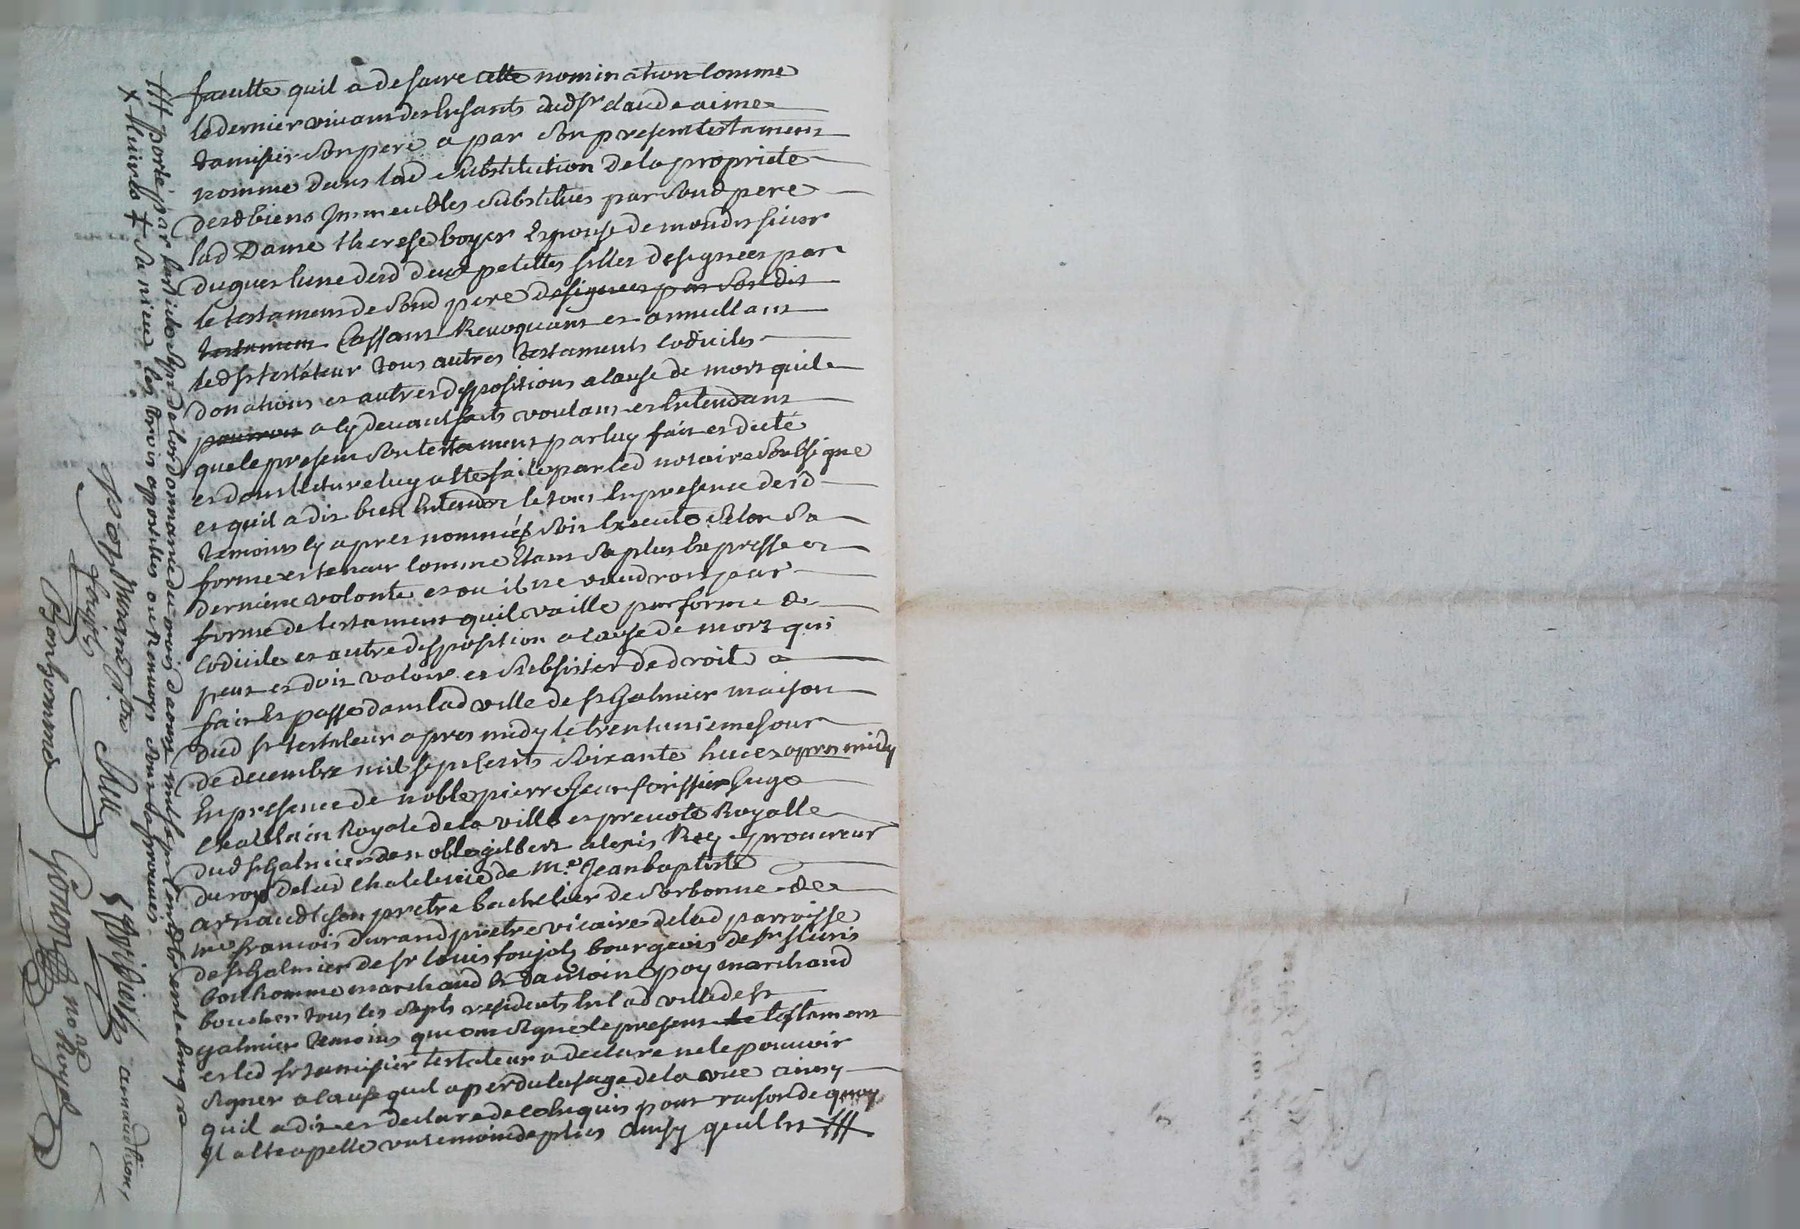 faculté quil a de faire cette nomination comme
le dernier vivant des enfants dud sr claude aimé
tamisier son pere a par son present testament
nommé dans lad substitution de la propriete
desd biens immeubles substitués par sond pere
lad Dame therese boyer Epouse de mondit sieur
duguet lune desd deux petittes filles designées par
le testament de sond pere designées par son dit
testament Cassant Revoquant et annullant
led sr testateur tous autres testaments codiciles
donations et autres dispositions a cause de mort quil
pourroit a cy devant faits voulant et Entendant
que le present son testament par luy fait et dicté
et dont lecture luy a été faite par led notaire soussigné
et quil a dit bien Entendre le tout En presence desd
temoins cy apres nommés soit Executé selon sa
forme et teneur comme Etant sa plus Expresse et
derniere volonté et ou il ne vaudroit par
forme de testament quil vaille par forme de
codicile et autre disposition a cause de mort qui
peut et doit valoir et subsister de droit a
fait Et passé dans lad ville de st Galmier maison
dud sr testateur apres midy le trente unieme jour
de decembre mil sept Cents soixante huit apres midy
En presence de noble pierre forissier juge
Chatelain Royale de la ville et prevoté Royalle
dud st Galmier de noble gilbert alexis Rey procureur
du roy de lad Chatelenie de Me Jean baptiste
arnaud tison pretre bachelier de Sorbonne de
me francois durand pretre vicaire de lad parroisse
de st Galmier de sr louis foujols bourgeois de sr
bonhomme marchand Et d'antoine poy marchand
boucher tous les septs residents En lad ville de st
galmier temoins qui ont signé le present testament
et led sr tamisier testateur a declaré ne le pouvoir
signer a cause quil a perdu lusage de la vüe ainsy
quil a dit et declaré de ce Enquis pour raison de quoy
il a été apellé un temoin de plus ainsy quil Est
porté par larticle sept de lordonnance du mois daoust mil sept cent trente cinq
x Minrbo sa niece les trois apostilles ou Renvois sont aprouvés
poy Durand ptre Rey forissier arnaud tison
foujols
Bonhomme
no.re Royal